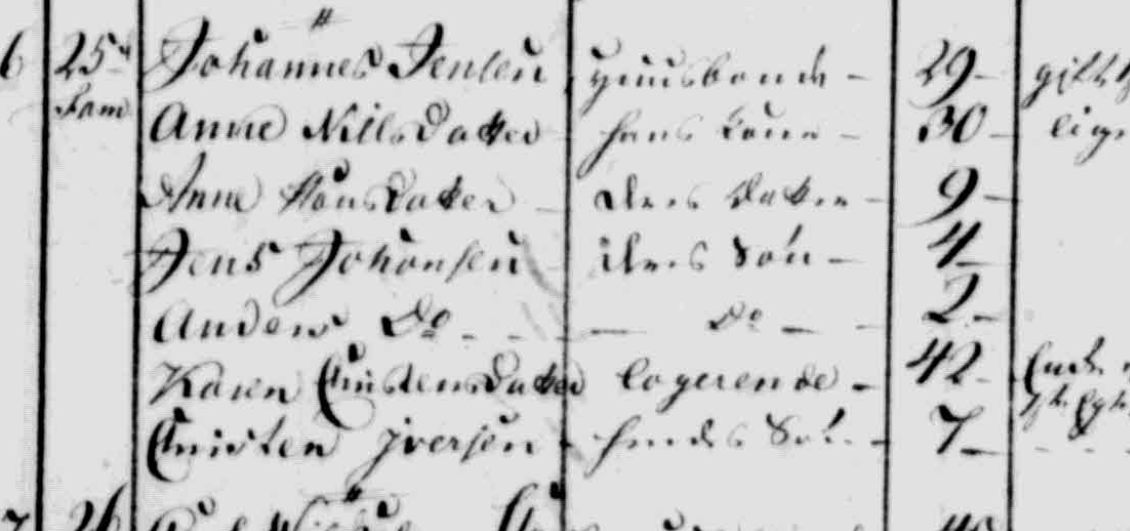 6 25de Johannes Jensen Huusbonde - 29 - gift
Fam Anne Nillsdatter hans Kone - 30 -
Anne Hansdatter - deres datter - 9 -
Jens Johansen deres Søn - 4 -
Anders Do - - - Do - - 2 -
Karen Christensdatter logerende - 42 -
Christen Jversen - hendes Søn - 7 - - - -
7 26